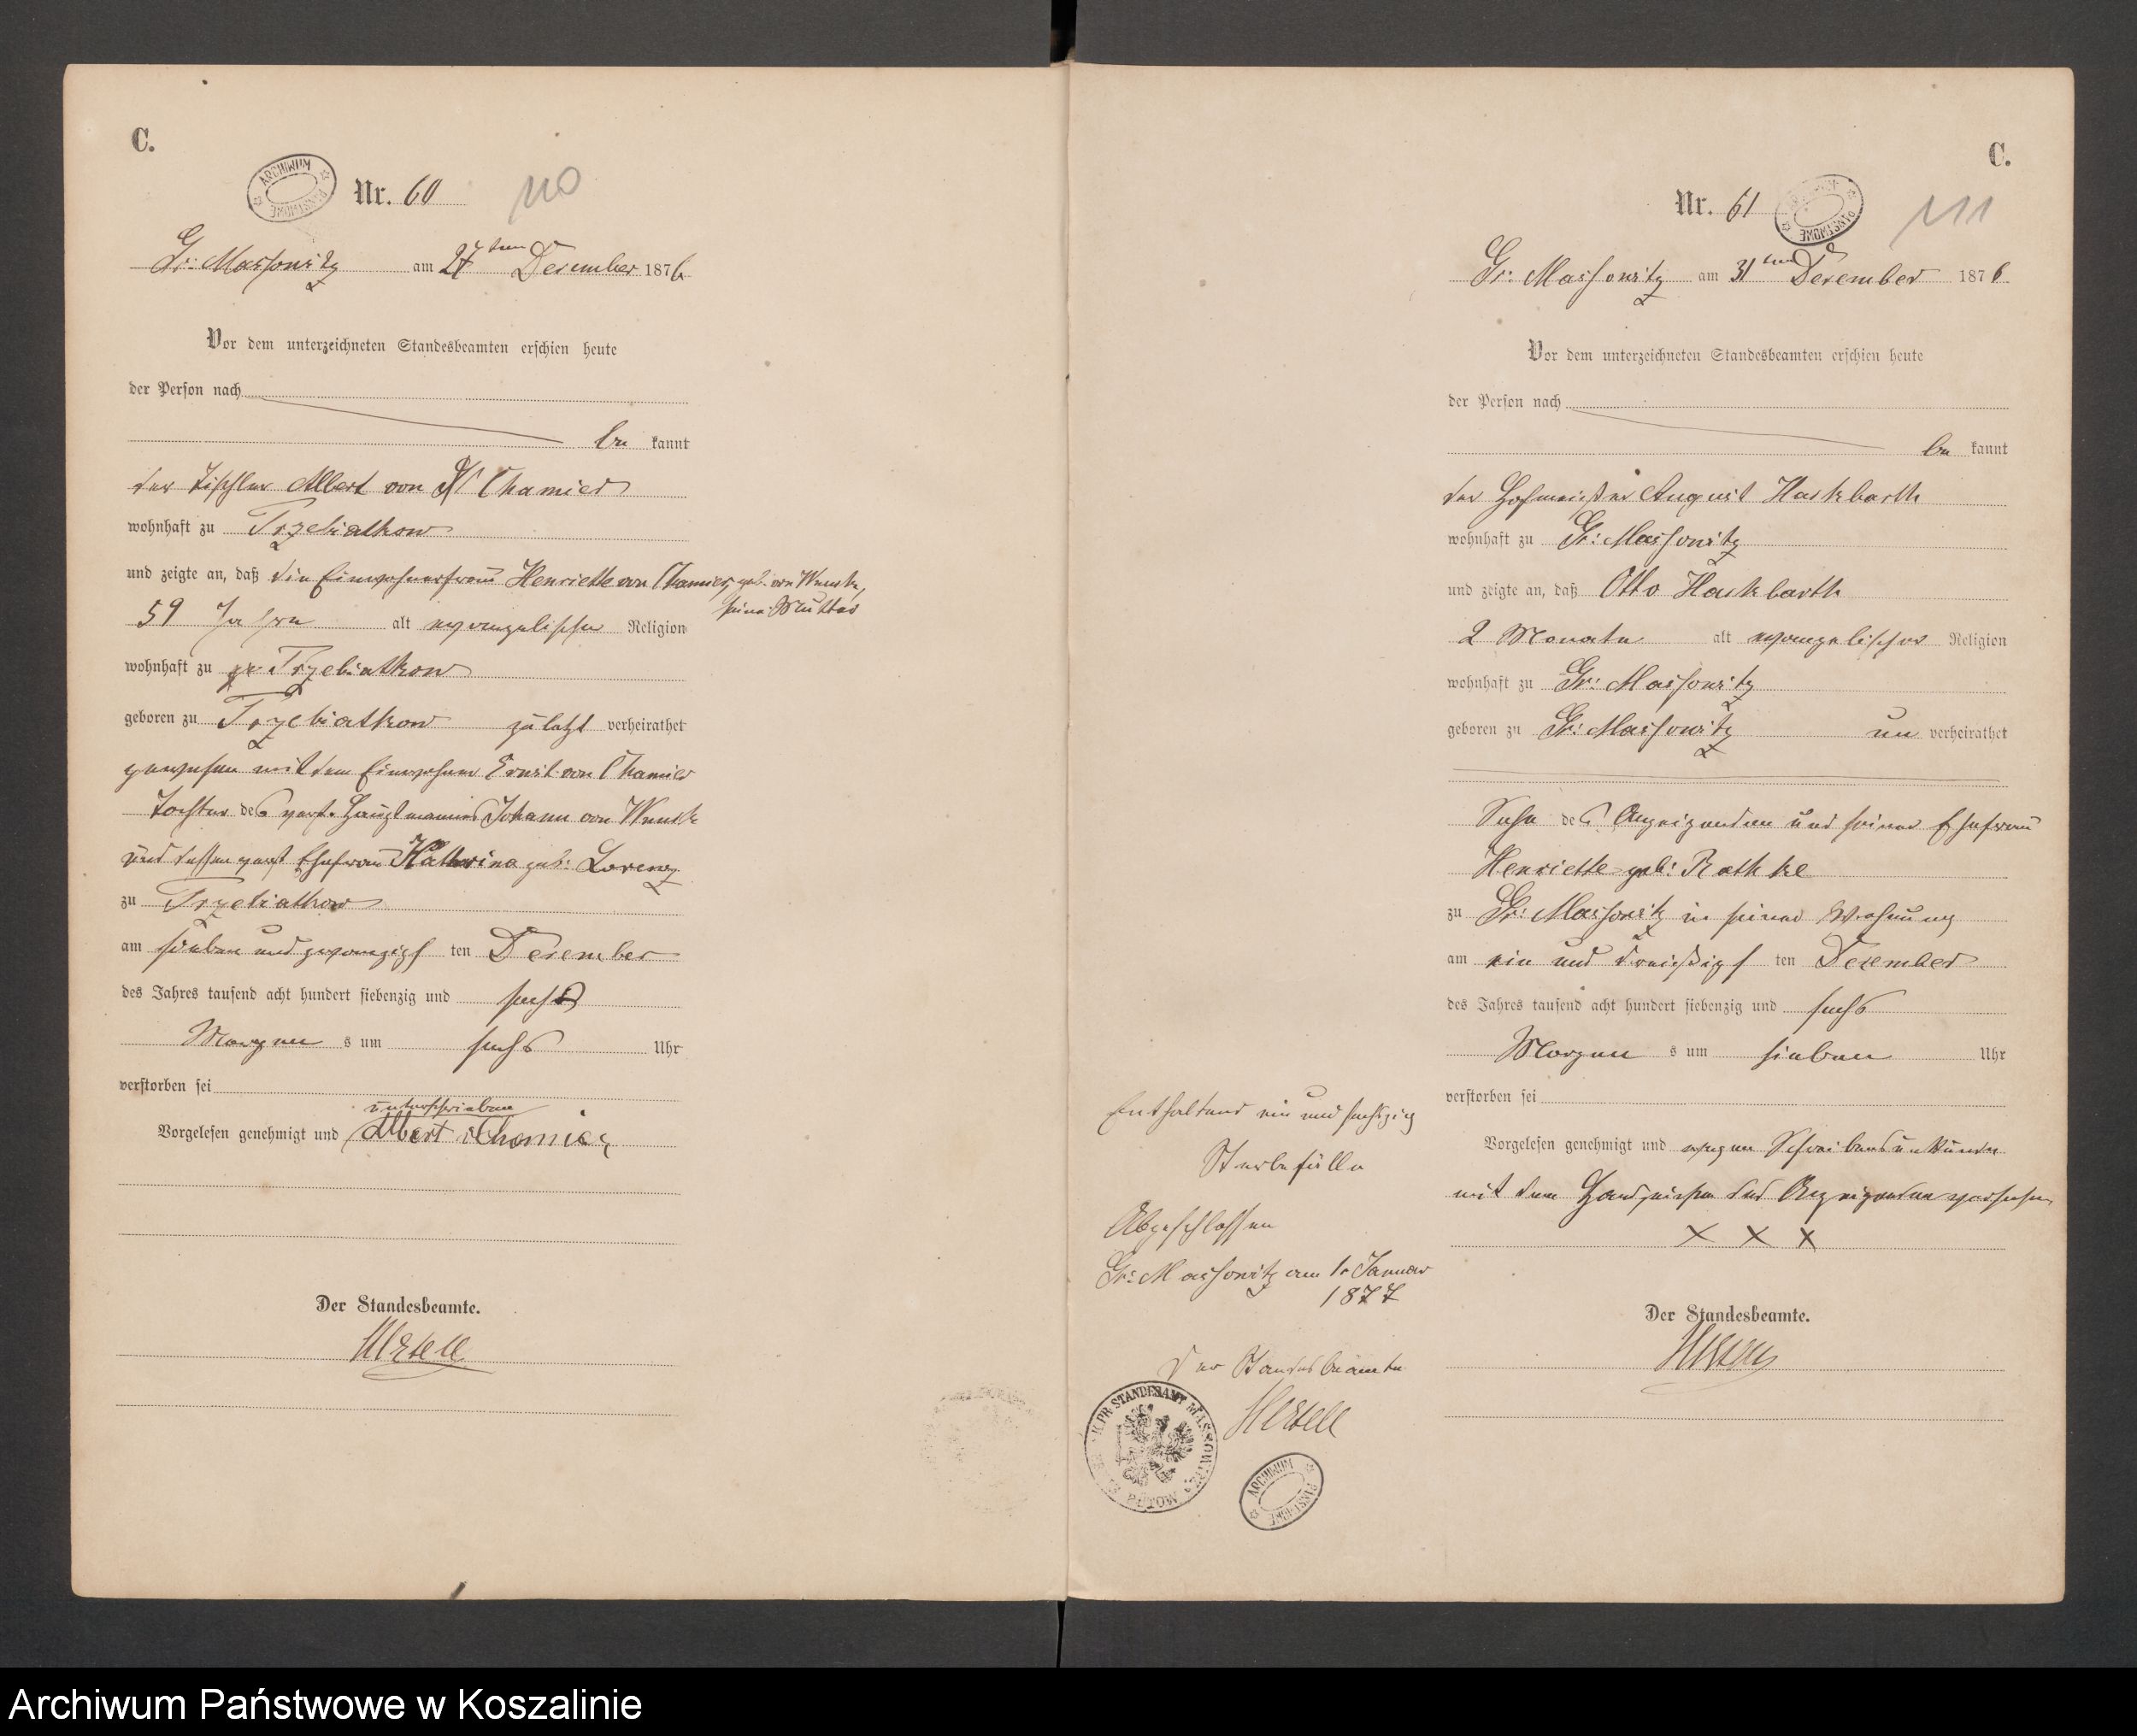 C.
ARCHIWUM PAŃSTWOWE
Nr. 60
110
Gr: Massowitz am 27ten Dezember 1876
Vor dem unterzeichneten Standesbeamten erschien heute
der Person nach
be kannt
der Tischler Albert von Chamier
wohnhaft zu Trzebiatkow
und zeigte an, daß die Einwohnerfrau Henriette von Chamier, geb. von Wnuck,
seine Mutter
59 Jahre alt evangelischer Religion
wohnhaft zu Trzebiatkow
geboren zu Trzebiatkow zuletzt verheirathet
gewesen mit dem Einwohner Ernst von Chamier
Tochter des verst. Hauptmanns Johann von Wnuck
und dessen verst Ehefrau Katharina geb: Lorenz
zu Trzebiatkow
am sieben und zwanzigs ten Dezember
des Jahres tausend acht hundert siebenzig und sechs
Morgen s um sechs Uhr
verstorben sei
unterschrieben
Vorgelesen genehmigt und Albert v Chamier
Der Standesbeamte.
C.
Nr. 61
PAŃSTWOWE
111
Gr: Massowitz am 31ten Dezember 1876
Vor dem unterzeichneten Standesbeamten erschien heute
der Person nach
be kannt
der Hofmeister August Hackbarth
wohnhaft zu Gr: Massowitz
und zeigte an, daß Otto Hackbarth
2 Monate alt evangelischer Religion
wohnhaft zu Gr: Massowitz
geboren zu Gr: Massowitz un verheirathet
Sohn des Anzeigenden und seiner Ehefrau
Henriette geb: Rathke
zu Gr: Massowitz in seiner Wohnung
am ein und dreißigs ten Dezember
des Jahres tausend acht hundert siebenzig und sechs
Morgen s um sieben Uhr
verstorben sei
Vorgelesen genehmigt und wegen Schreibensunkunde
mit dem Handzeichen des Anzeigenden versehen
X X X
Der Standesbeamte.
Enthaltend ein und sechszig
Sterbefälle
Abgeschlossen
Gr: Massowitz am 1. Januar
1877
Der Standesbeamte
K. PR. STANDESAMT MASSOWITZ BÜTOW
ARCHIWUM PAŃSTWOWE
Archiwum Państwowe w Koszalinie